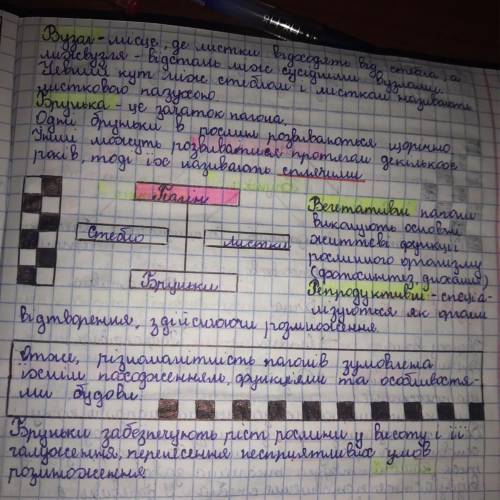 Вузол - місце, де листки відходять від стебла, а
міжвузля - відстань між сусідніми вузлами.
Певний кут між стеблом і листком називають
листковою пазухою
Брунька - це зачаток пагона.
Одні бруньки в рослин розвиваються щорічно,
Інші можуть розвиватися протягом декількох
років, тоді їх називають сплячими
Пагін
Стебло
Листки
Бруньки
Вегетативні пагони
виконують основні
життєві функції
рослинного організму
(фотосинтез, дихання)
Репродуктивні - спеціа-
лізуються як органи
відтворення, здійснюючи розмноження
Отже, різноманітність пагонів зумовлена
їхнім походженням, функціями та особливостя-
ми будови.
Бруньки забезпечують ріст рослини у висоту і її
галуження, перенесення несприятливих умов
розмноження